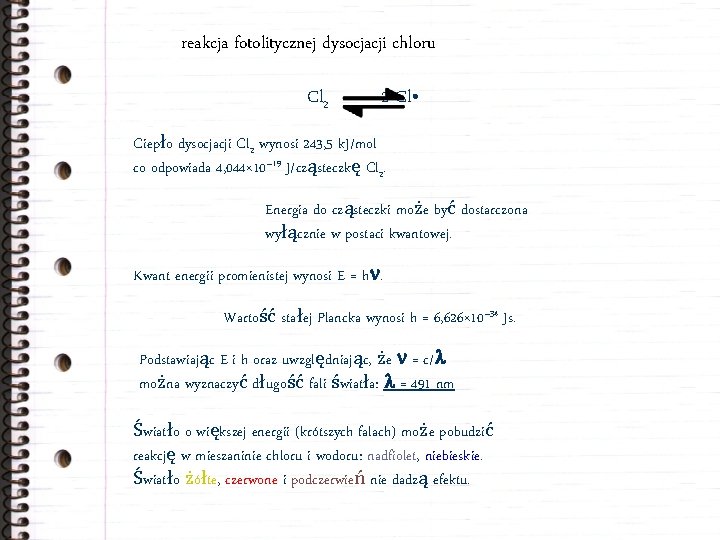 reakcja fotolitycznej dysocjacji chloru
Cl₂ ⇌ 2 Cl•
Ciepło dysocjacji Cl₂ wynosi 243,5 kJ/mol
co odpowiada 4,044×10⁻¹⁹ J/cząsteczkę Cl₂.
Energia do cząsteczki może być dostarczona
wyłącznie w postaci kwantowej.
Kwant energii promienistej wynosi E = hν.
Wartość stałej Plancka wynosi h = 6,626×10⁻³⁴ Js.
Podstawiając E i h oraz uwzględniając, że ν = c/λ
można wyznaczyć długość fali światła: λ = 491 nm
Światło o większej energii (krótszych falach) może pobudzić
reakcję w mieszaninie chloru i wodoru: nadfiolet, niebieskie.
Światło żółte, czerwone i podczerwień nie dadzą efektu.